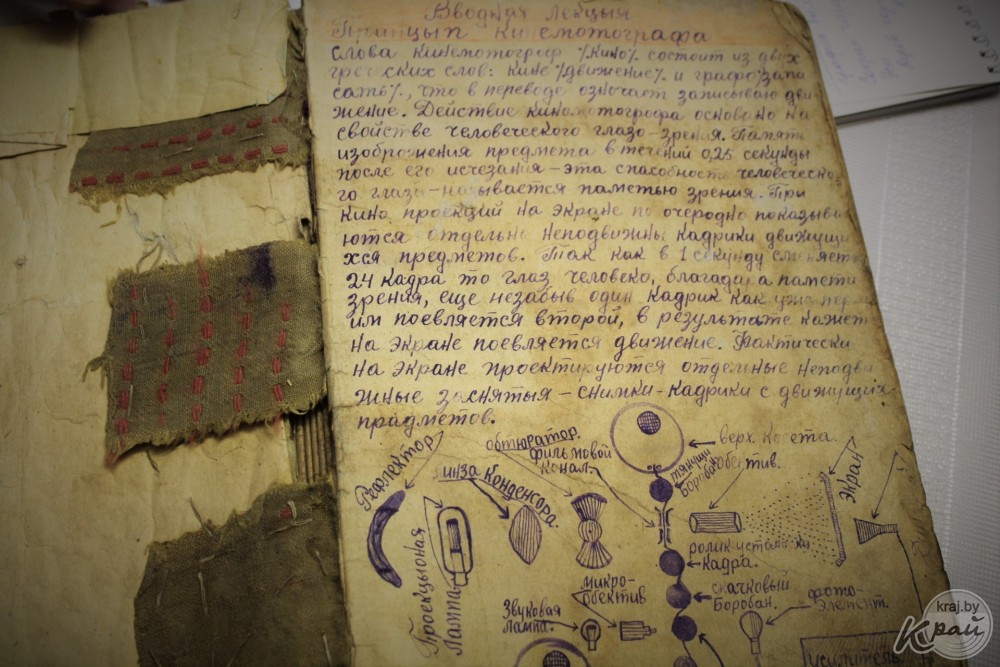 Вводная лекцыя
Принцып кинемотографа
Слова кинемотогроф /кино/. состоит из двух
греческих слов: кине /движение/. и графо/запи
сать/., что в переводе означает записываю дви-
жение. Действие киномотогрофа основано на
свойстве человеческого глазо-зрения. Память
изоброжения предмета в течений 0,25 секунды
после его исчезания-эта способность человеческо-
го глаза-называется паметью зрения. При
кино проекций на экране по очередно показыва
ются отдельно неподвижны кадрики движущи
хся предметов. Так как в 1 секунду сменяет
24 кадра то глаз человека, благадара памети
зрения, еще незабыв один кадрик как уже
им поевляется второй, в результате кажет
на экране поевляется движение. Фактически
на экране проектируются отдельные неподви
жные заснятыя-снимки-кадрики с движущихся
прадметов.
Рефлектор
линза Конденсора.
обтюратор.
фильмовой
канал.
тянущи
Боробан
верх. Косета.
обектив.
Экран
Проекцыоная
Лампа
ролик устан ки
кадра.
микро-
обектив
скачковый
Боробан.
Звуковая
лампа.
фото-
элемент.
усилитель
kraj.by
Край